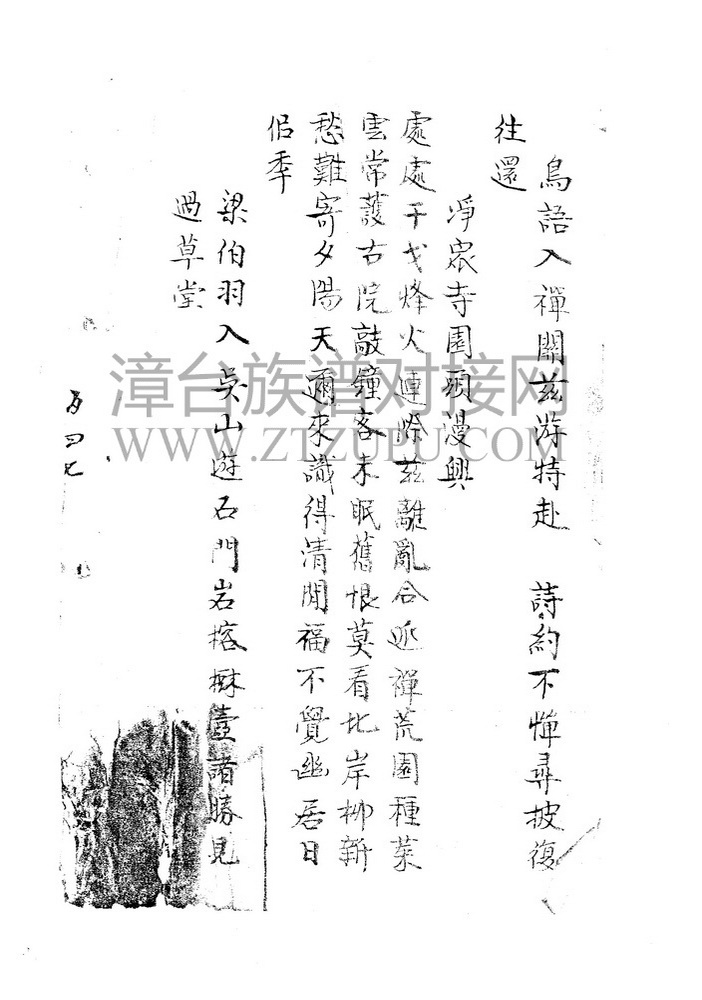 鳥語入禪關茲游特赴　詩約不憚尋披復
往還
淨眾寺園頭漫興
處處干戈烽火連際茲離亂合逃禪荒園種菜
雲常護古院敲鐘客未眠舊恨莫看北岸柳新
愁難寄夕陽天邇來識得清閒福不覺幽居日
侶季
梁伯羽入吳山遊石門岩榕樹壺諸勝見
過草堂
漳台族谱对接网
WWW.ZTZUPU.COM